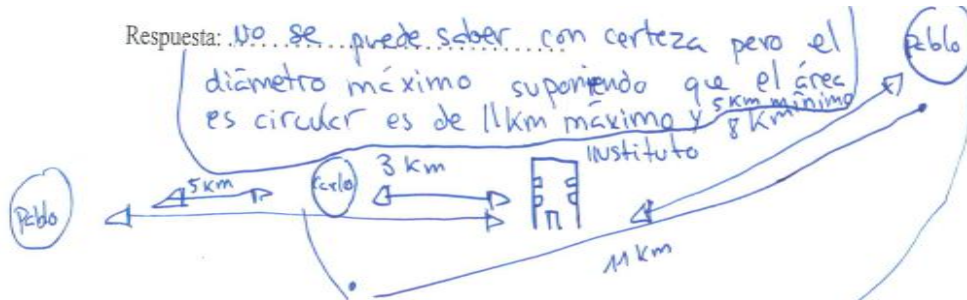 Respuesta: No se puede saber con certeza pero el
diámetro máximo suponiendo que el área
es circular es de 11km máximo y 5km mínimo
Pablo
8 Km
Instituto
5km
Carlo
3 Km
Pablo
11 Km